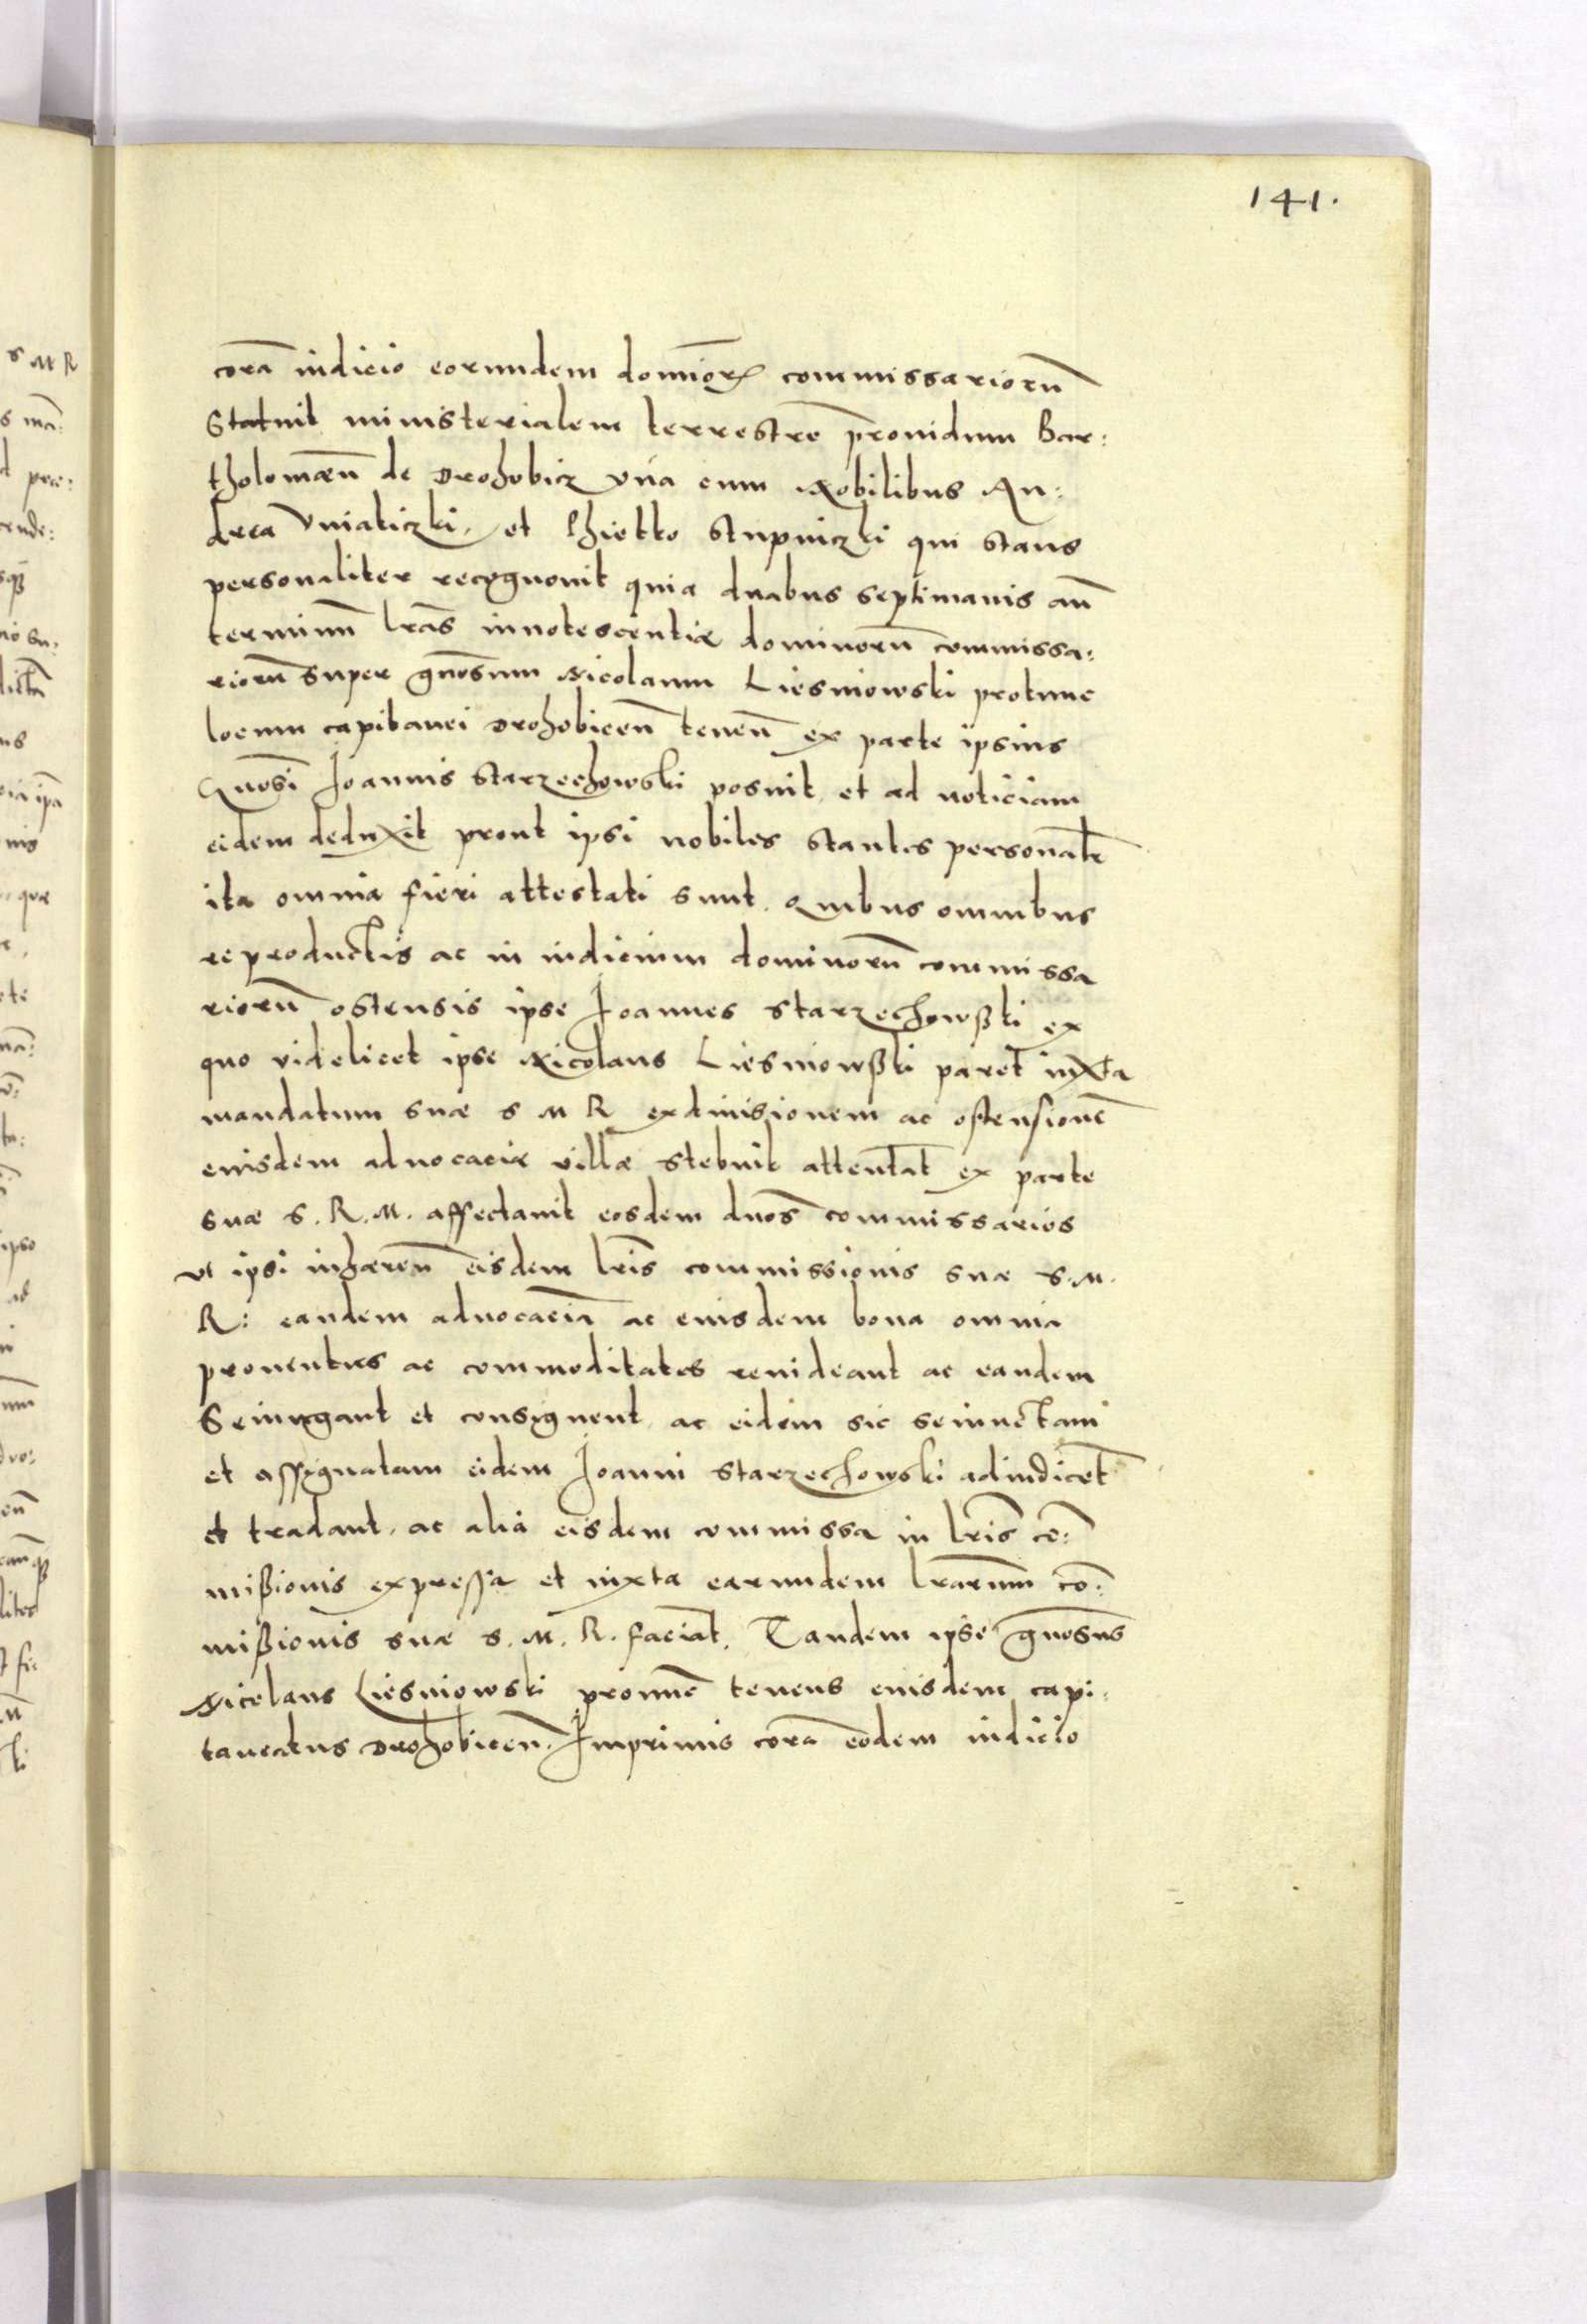 141.
corā iudicio eorundem dominorꝝ commissariorū
Statuit ministerialem terrestrē prouidum Bar:
tholomæū de Drohobicz vna cum Nobilibus An:
drea Vniaticzki, et Chietko Stupniczki qui stans
personaliter recognouit quia duabus septimanis añ
terminū lr̃as innotescentiæ dominorū commissa:
riorū super gñosum Nicolaum Liesniowski protunc
locum capitanei Drohobiceñ teneñ ex parte ipsius
Gñosi Joannis Starzechowski posuit et ad noticiam
eidem deduxit prout ipsi nobiles stantes personalr̃
ita omnia fieri attestati sunt. Quibus omnibus
reproductis ac in iudicium dominorū commissa
riorū ostensis ipse Joannes Starzechowßki ex
quo videlicet ipse Nicolaus Liesniowßki paret iuxta
mandatum suæ S M R exdiuisionem ac ostensionē
eiusdem aduocaciæ villæ Stebnik attentat̃ ex parte
suæ S. R. M. affectauit eosdem dños commissarios
vt ipsi inhæreñ eisdem lr̃is commissionis suæ S. M.
R: eandem aduocaciā ac eiusdem bona omnia
prouentus ac commoditates reuideant ac eandem
Seiungant et consignent ac eidem sic seiunctam
et assignatam eidem Joanni Starzechowski adiudicet̃
et tradant, ac alia eisdem commissa in lr̃is cō:
mißionis expressa et iuxta earundem lr̃arum cō:
mißionis suæ S. M. R. faciāt. Tandem ipse gñosus
Nicolaus Liesniowski pronunc̃ tenens eiusdem capi:
taneatus Drohobiceñ. Imprimis corā eodem iudicio